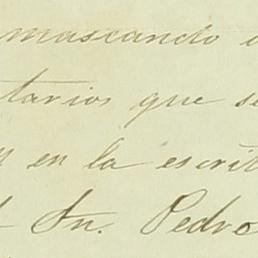 mascando
tarios que se
en la escrit
Sn. Pedro